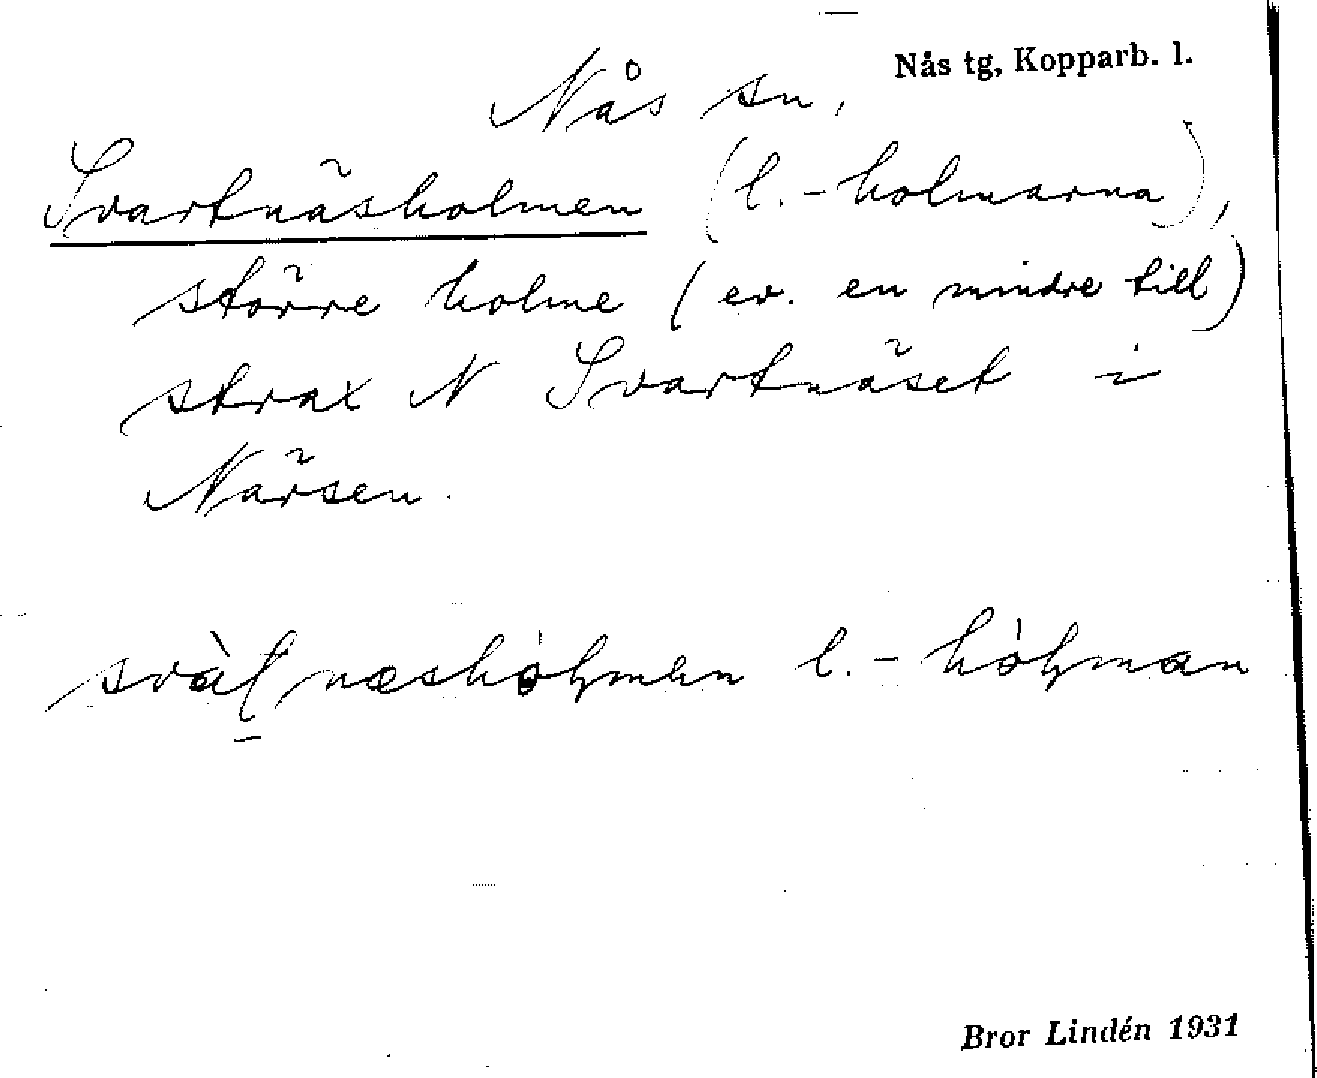 Nås tg, Kopparb. l.
Nås sn,
Svartnäsholmen (l. -holmarna),
större holme (ev. en mindre till)
strax N Svartnäset i
Närsen.
l. -
Bror Lindén 1931